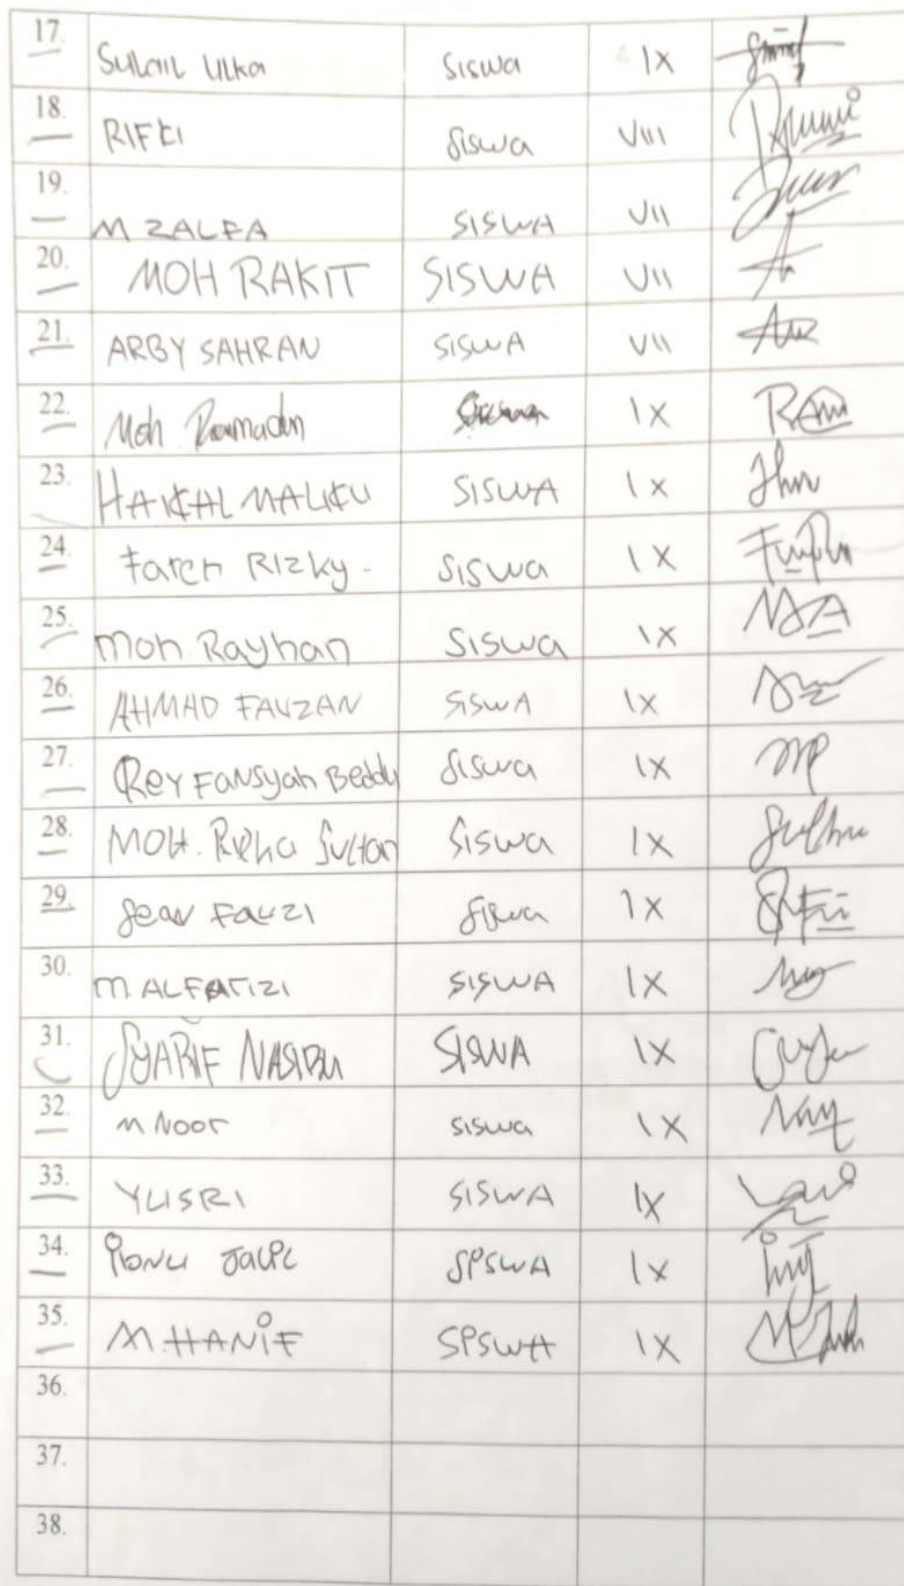 17. Sulail Ulka Siswa IX
18. RIFKI Siswa VIII
19. M ZALFA SISWA VII
20. MOH RAKIT SISWA VII
21. ARBY SAHRAN SISWA VII
22. Moh Ramadan IX
23. HAIKAL MALIKU SISWA IX
24. Faren RIZKy - SISWa IX
25. Moh. Rayhan SISWa IX
26. AHMAD FAUZAN SISWA IX
27. Rey Fansyah Beddu Siswa IX
28. MOH. Sultan Siswa IX
29. Fauzi Siswa IX
30. M ALFATIZI SISWA IX
31. SYARIF SISWA IX
32. M Noor siswa IX
33. YUSRI SISWA IX
34. ibnu SiSWA IX
35. M HANiF SiSWA IX
36.
37.
38.